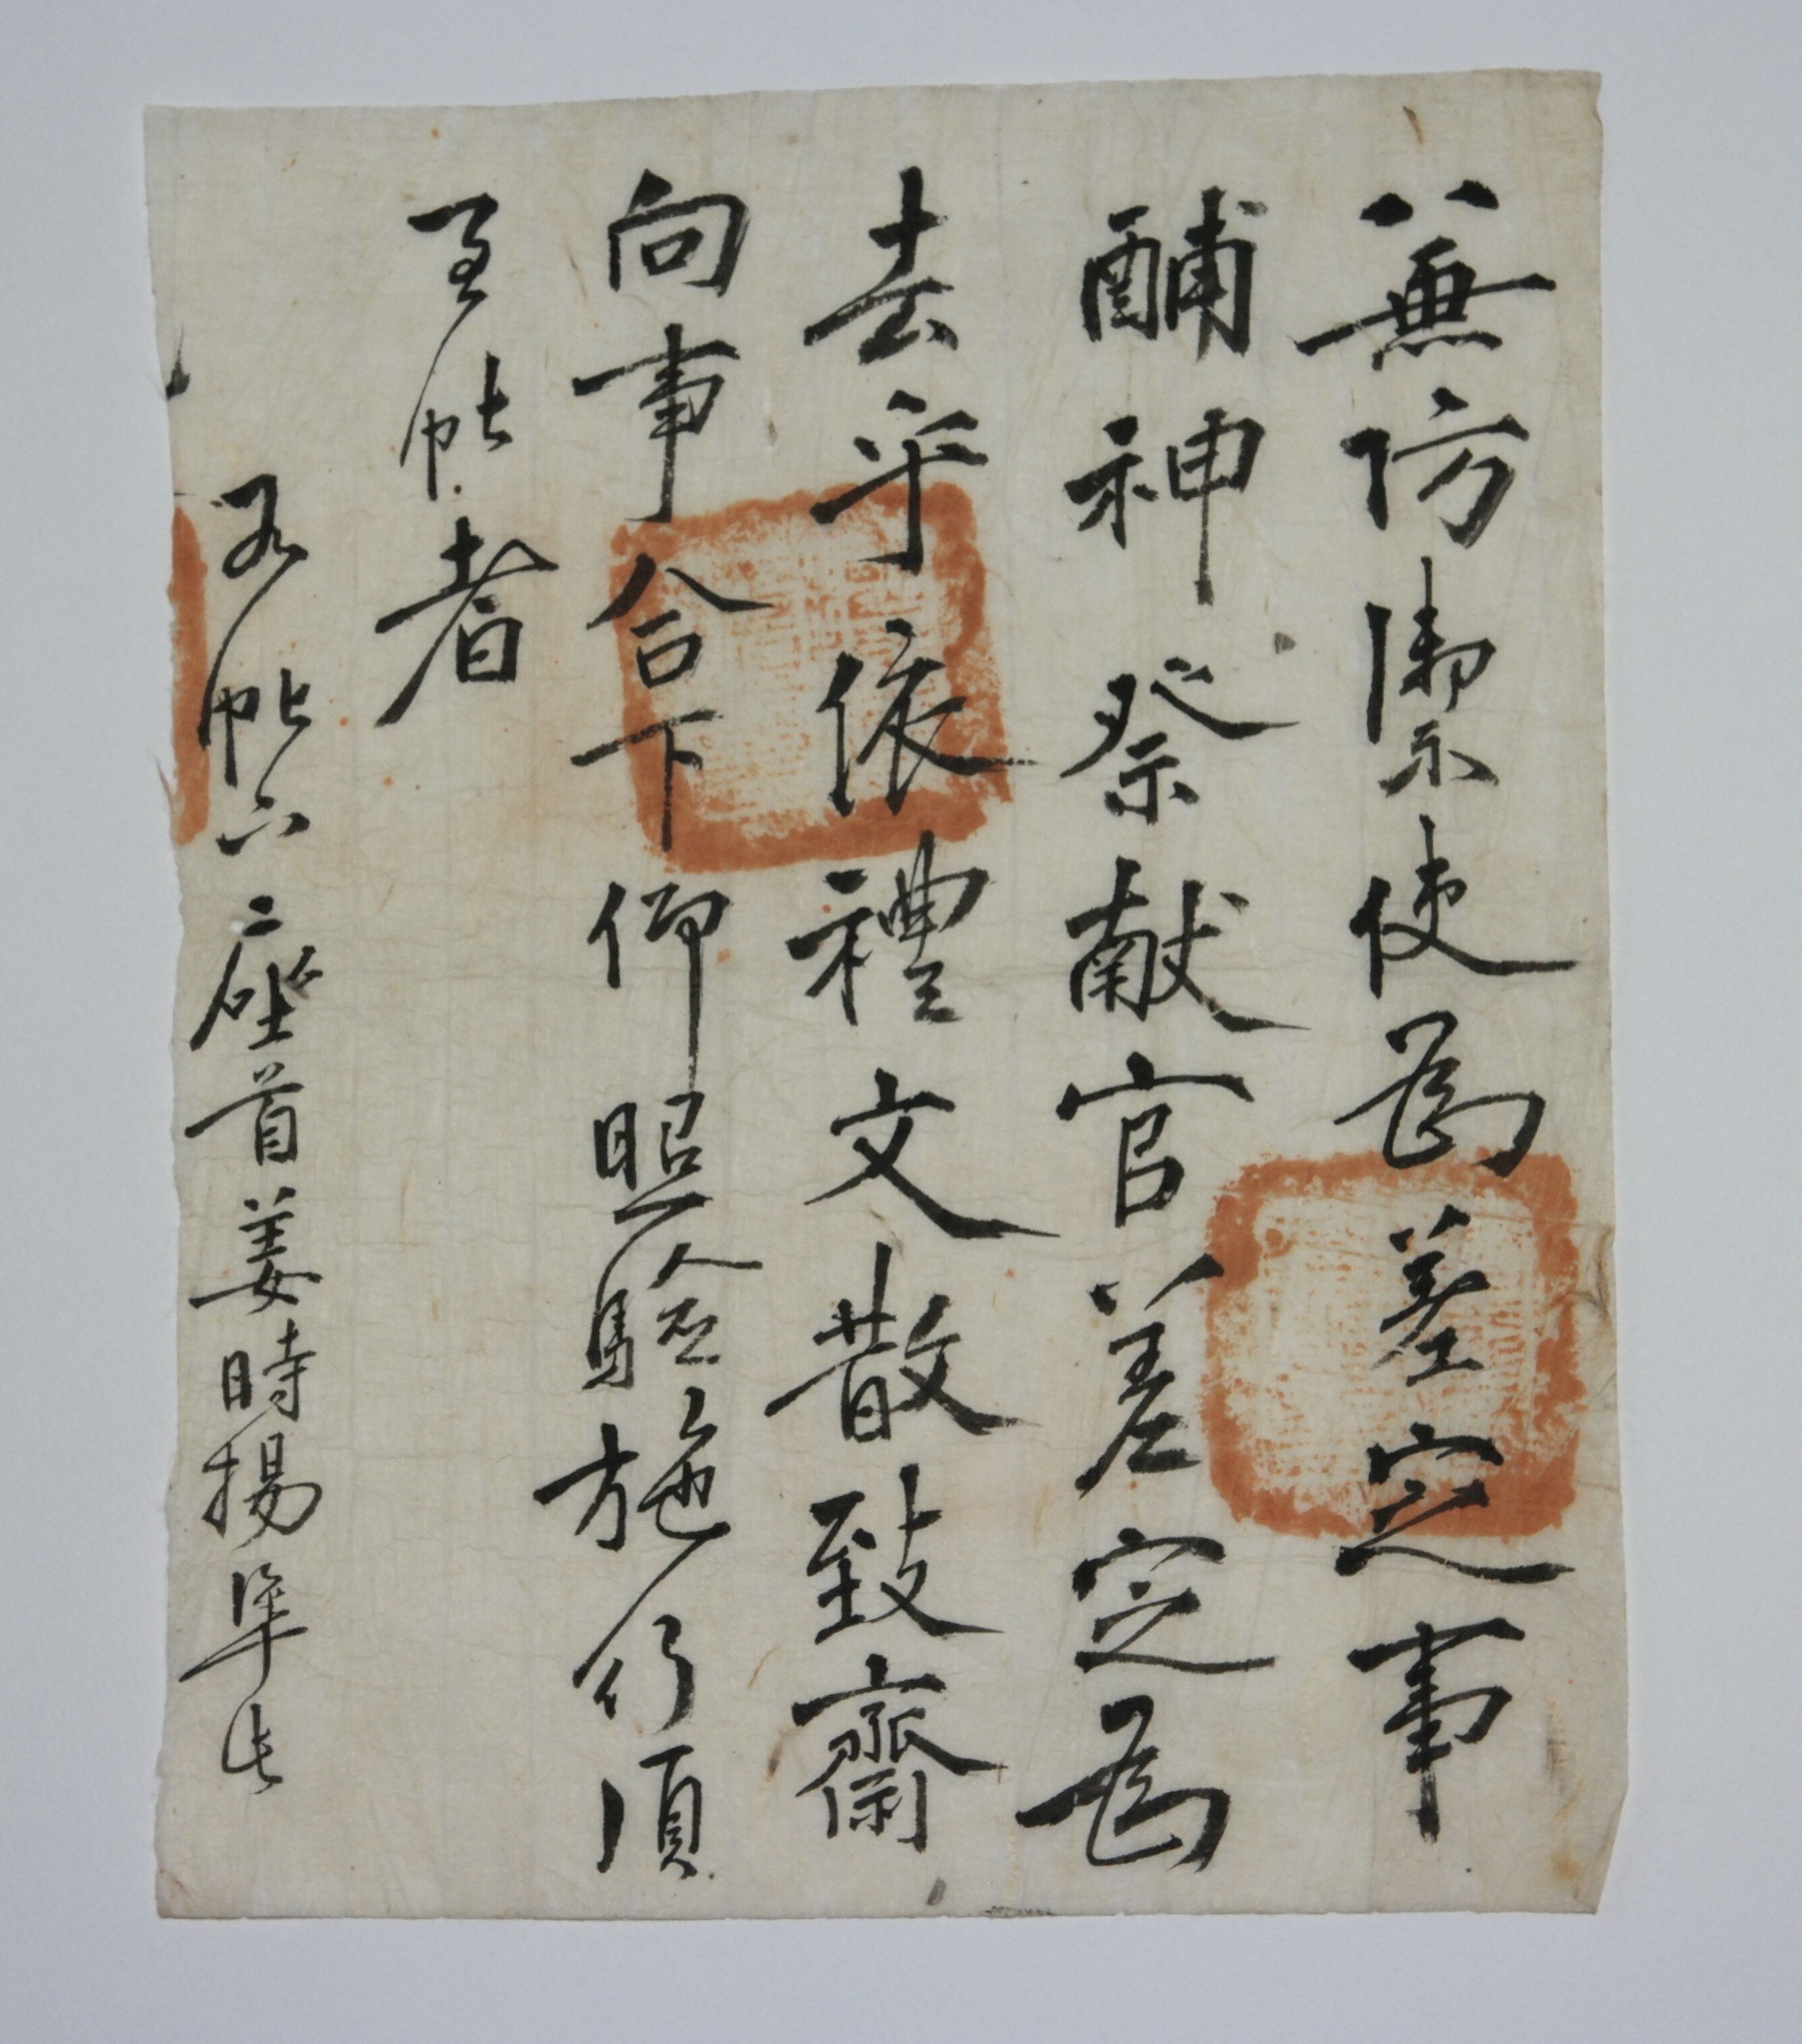 兼防禦使爲差定事
酺神祭献官差定爲
去乎依禮文散致齋
向事合下仰照驗施行須
至帖者
右帖下座首姜時揚準此